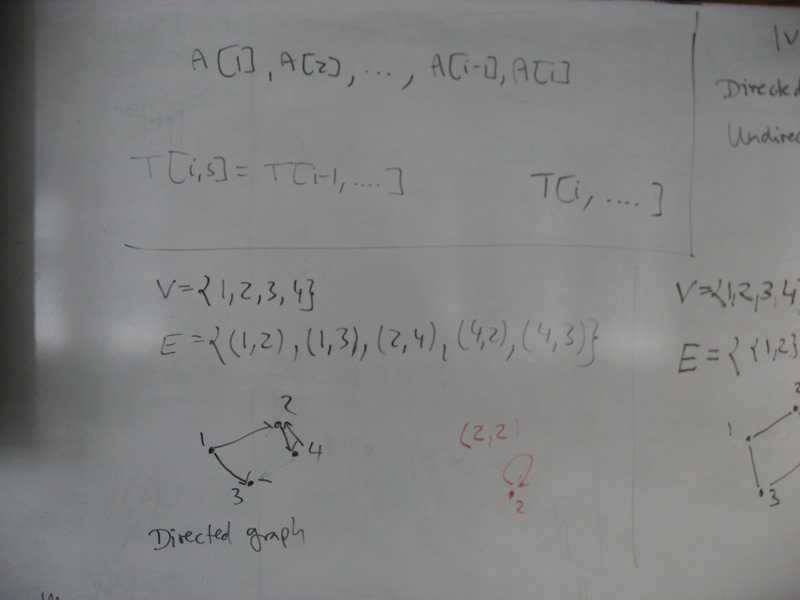 A[1], A[2], ..., A[i-1], A[i]
T[i,s] = T[i-1, ....]
T[i, ....]
V={1,2,3,4}
E={(1,2),(1,3),(2,4),(4,2),(4,3)}
2
1
4
3
Directed graph
(2,2)
2
|V
Directed
V={1,2,3,4
E={{1,2}
1
3